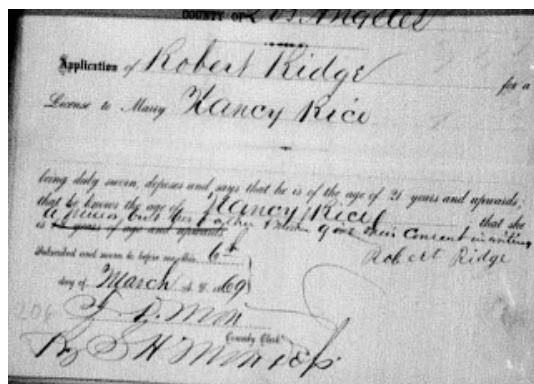 COUNTY OF Los Angeles
Application of Robert Ridge for a
License to Marry Nancy Rice
being duly sworn, deposes and says that he is of the age of 21 years and upwards;
that he knows the age of Nancy Rice that she
is a minor, and her father & mother gave their consent in writing
is years of age and upwards
Robert Ridge
Subscribed and sworn to before me, this 6th
day of March A. D. 1869
206
County Clerk
By S H